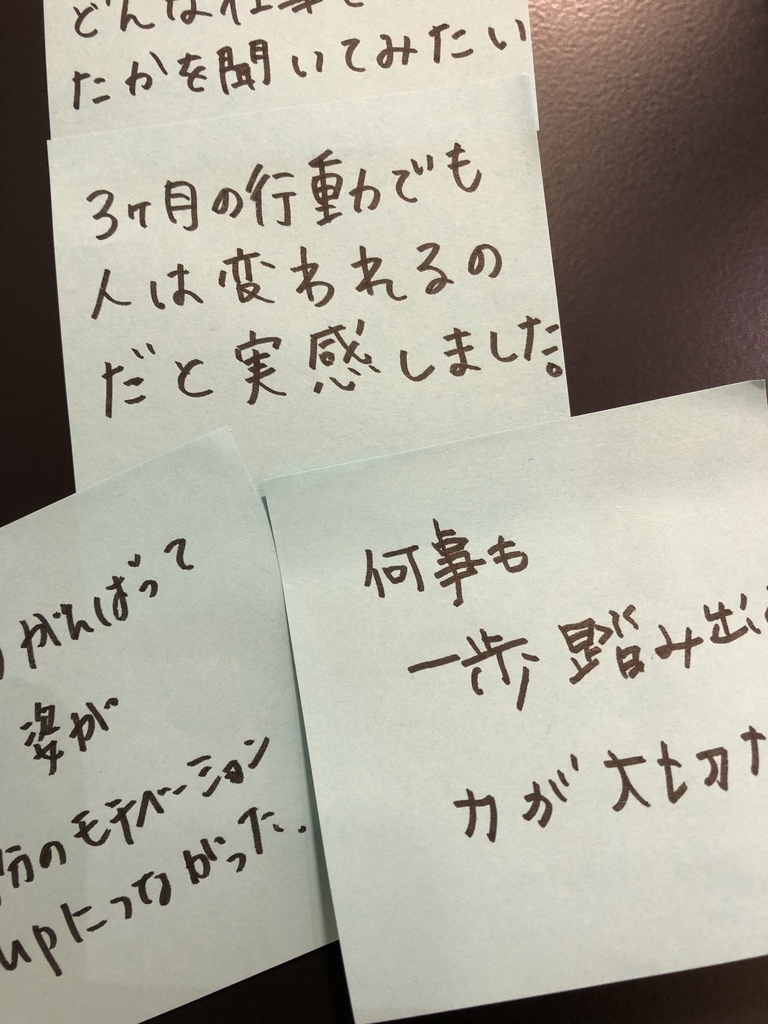 どんな仕事
たかを聞いてみたい
3ヶ月の行動でも
人は変われるの
だと実感しました。
がんばって
姿が
分のモチベーション
upにつながった.
何事も
一歩踏み出す
力が大切